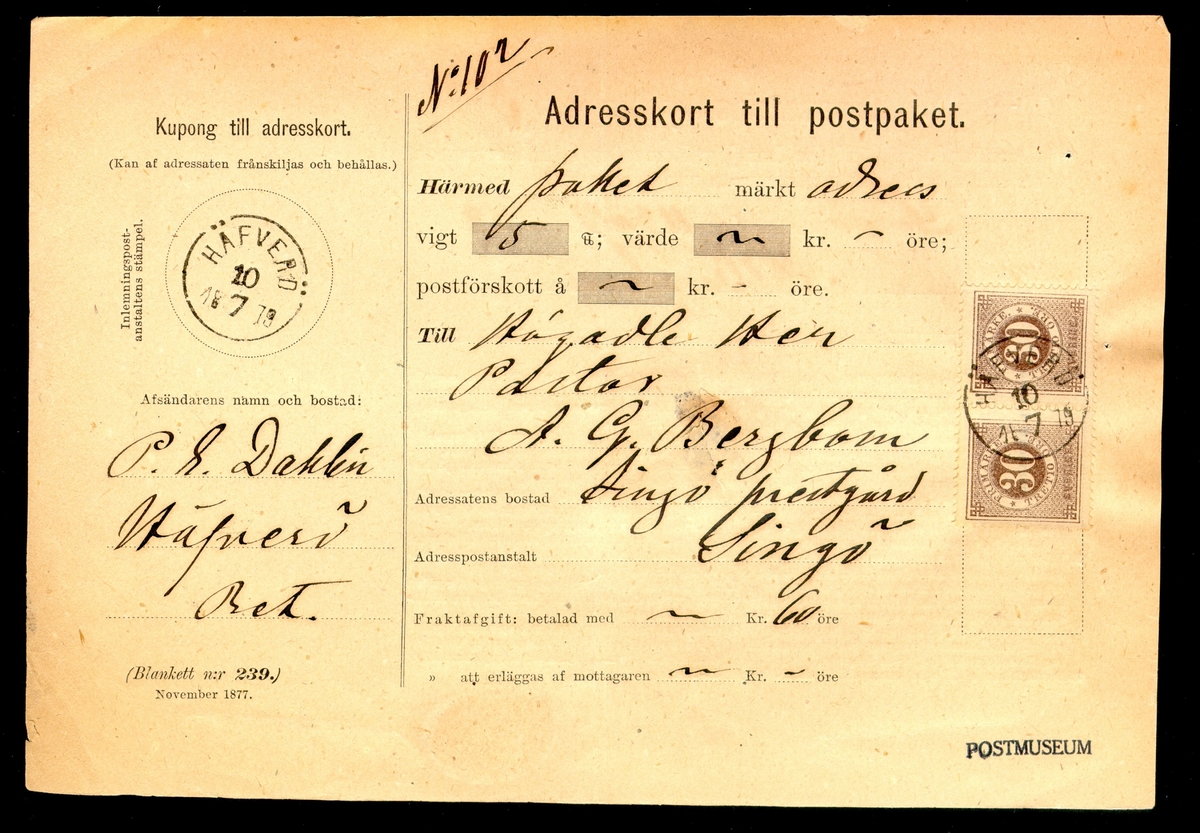 Kupong till adresskort.
(Kan af adressaten frånskiljas och behållas.)
Inlemningspost-
anstaltens stämpel.
HÄFVERÖ
10
7
18 79
Afsändarens namn och bostad:
P. E. Dahlin
Häfverö
Bet.
(Blankett n:r 239.)
November 1877.
No 102
Adresskort till postpaket.
Härmed paket märkt adress
vigt 5 ℔; värde ~ kr. ~ öre;
postförskott å ~ kr. - öre.
Till Högädle Her
Pastor
A. G. Bergbom
Adressatens bostad Singö prestgård
Adresspostanstalt Singö
Fraktafgift: betalad med ~ Kr. 60 öre
» att erläggas af mottagaren ~ Kr. ~ öre
30
HÄFVERÖ
10
7
18 79
30
POSTMUSEUM